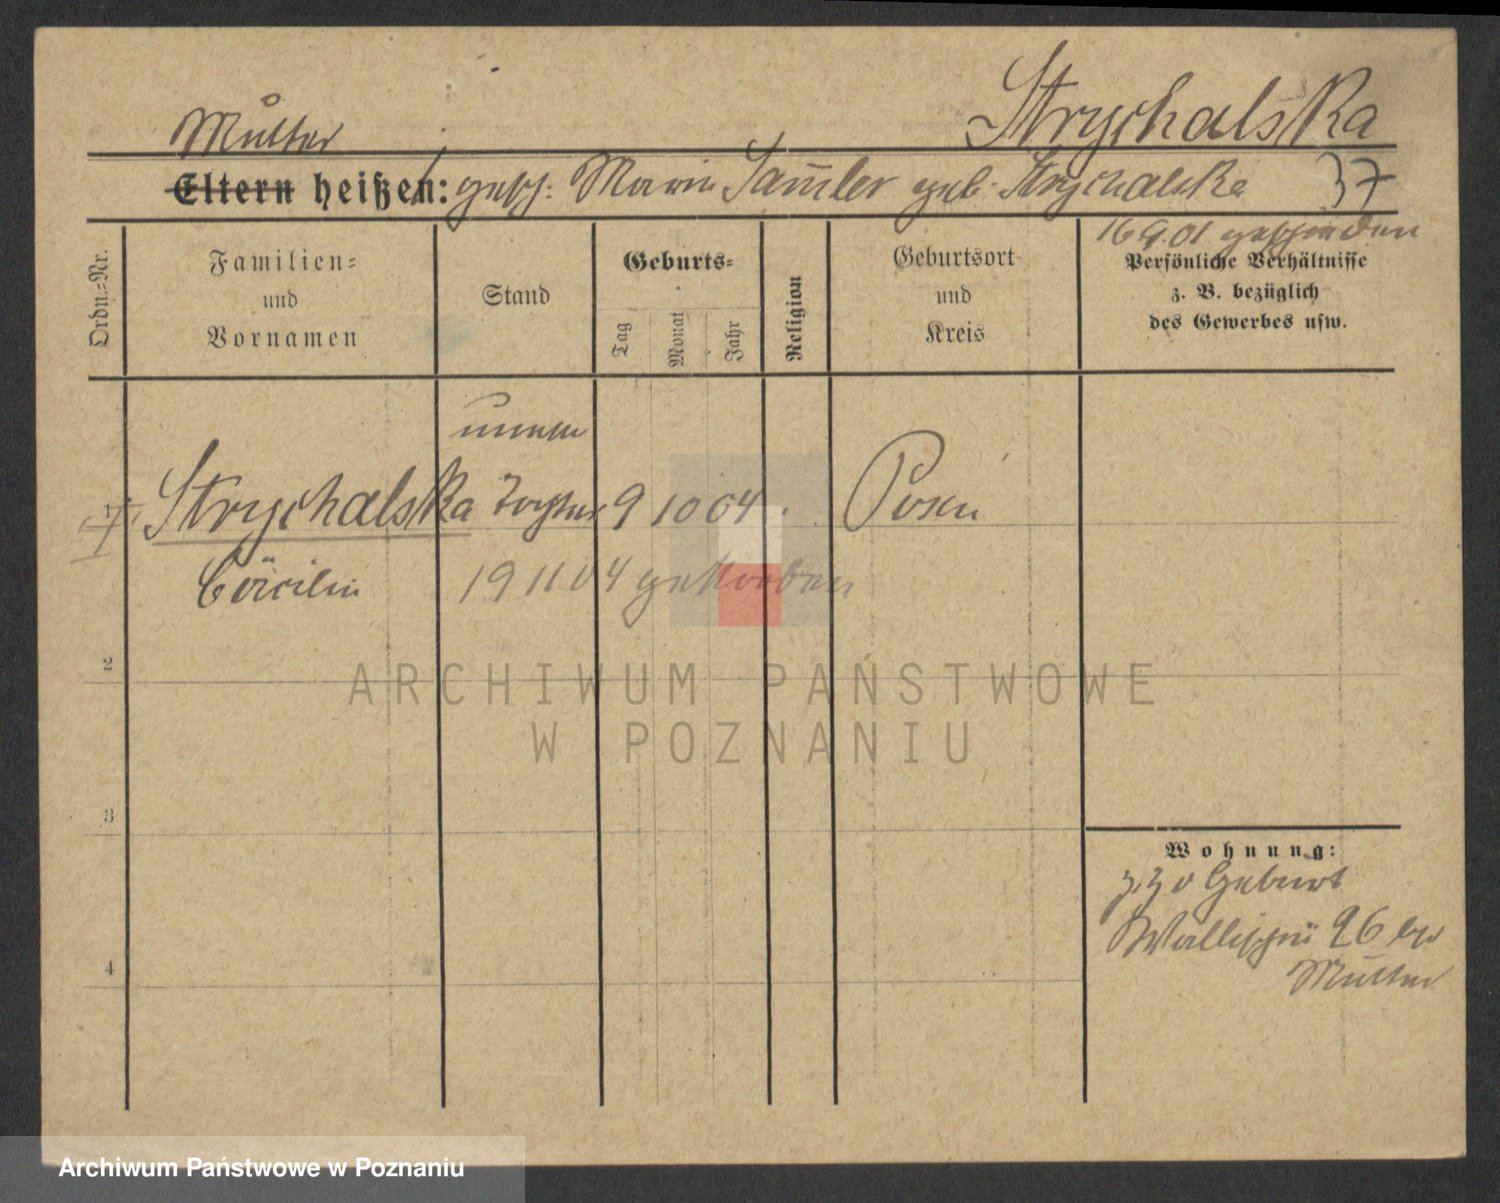 Strychalska
Mutter
Eltern heißen: gesch: Marie Samler geb. Strychalska 37
16 9.01 geschieden
Ordn.-Nr.
Familien- und Vornamen
Stand
Geburts-
Tag
Monat
Jahr
Religion
Geburtsort und Kreis
Persönliche Verhältnisse
z. B. bezüglich
des Gewerbes usw.
unehe
1 Strychalska Tochter 9 10 04 Posen
Cäcilie 19 11 04 gestorben
2
3
4
Wohnung:
z. Z d Geburt
Wallischei 26 bei
Mutter
ARCHIWUM PAŃSTWOWE
W POZNANIU
Archiwum Państwowe w Poznaniu